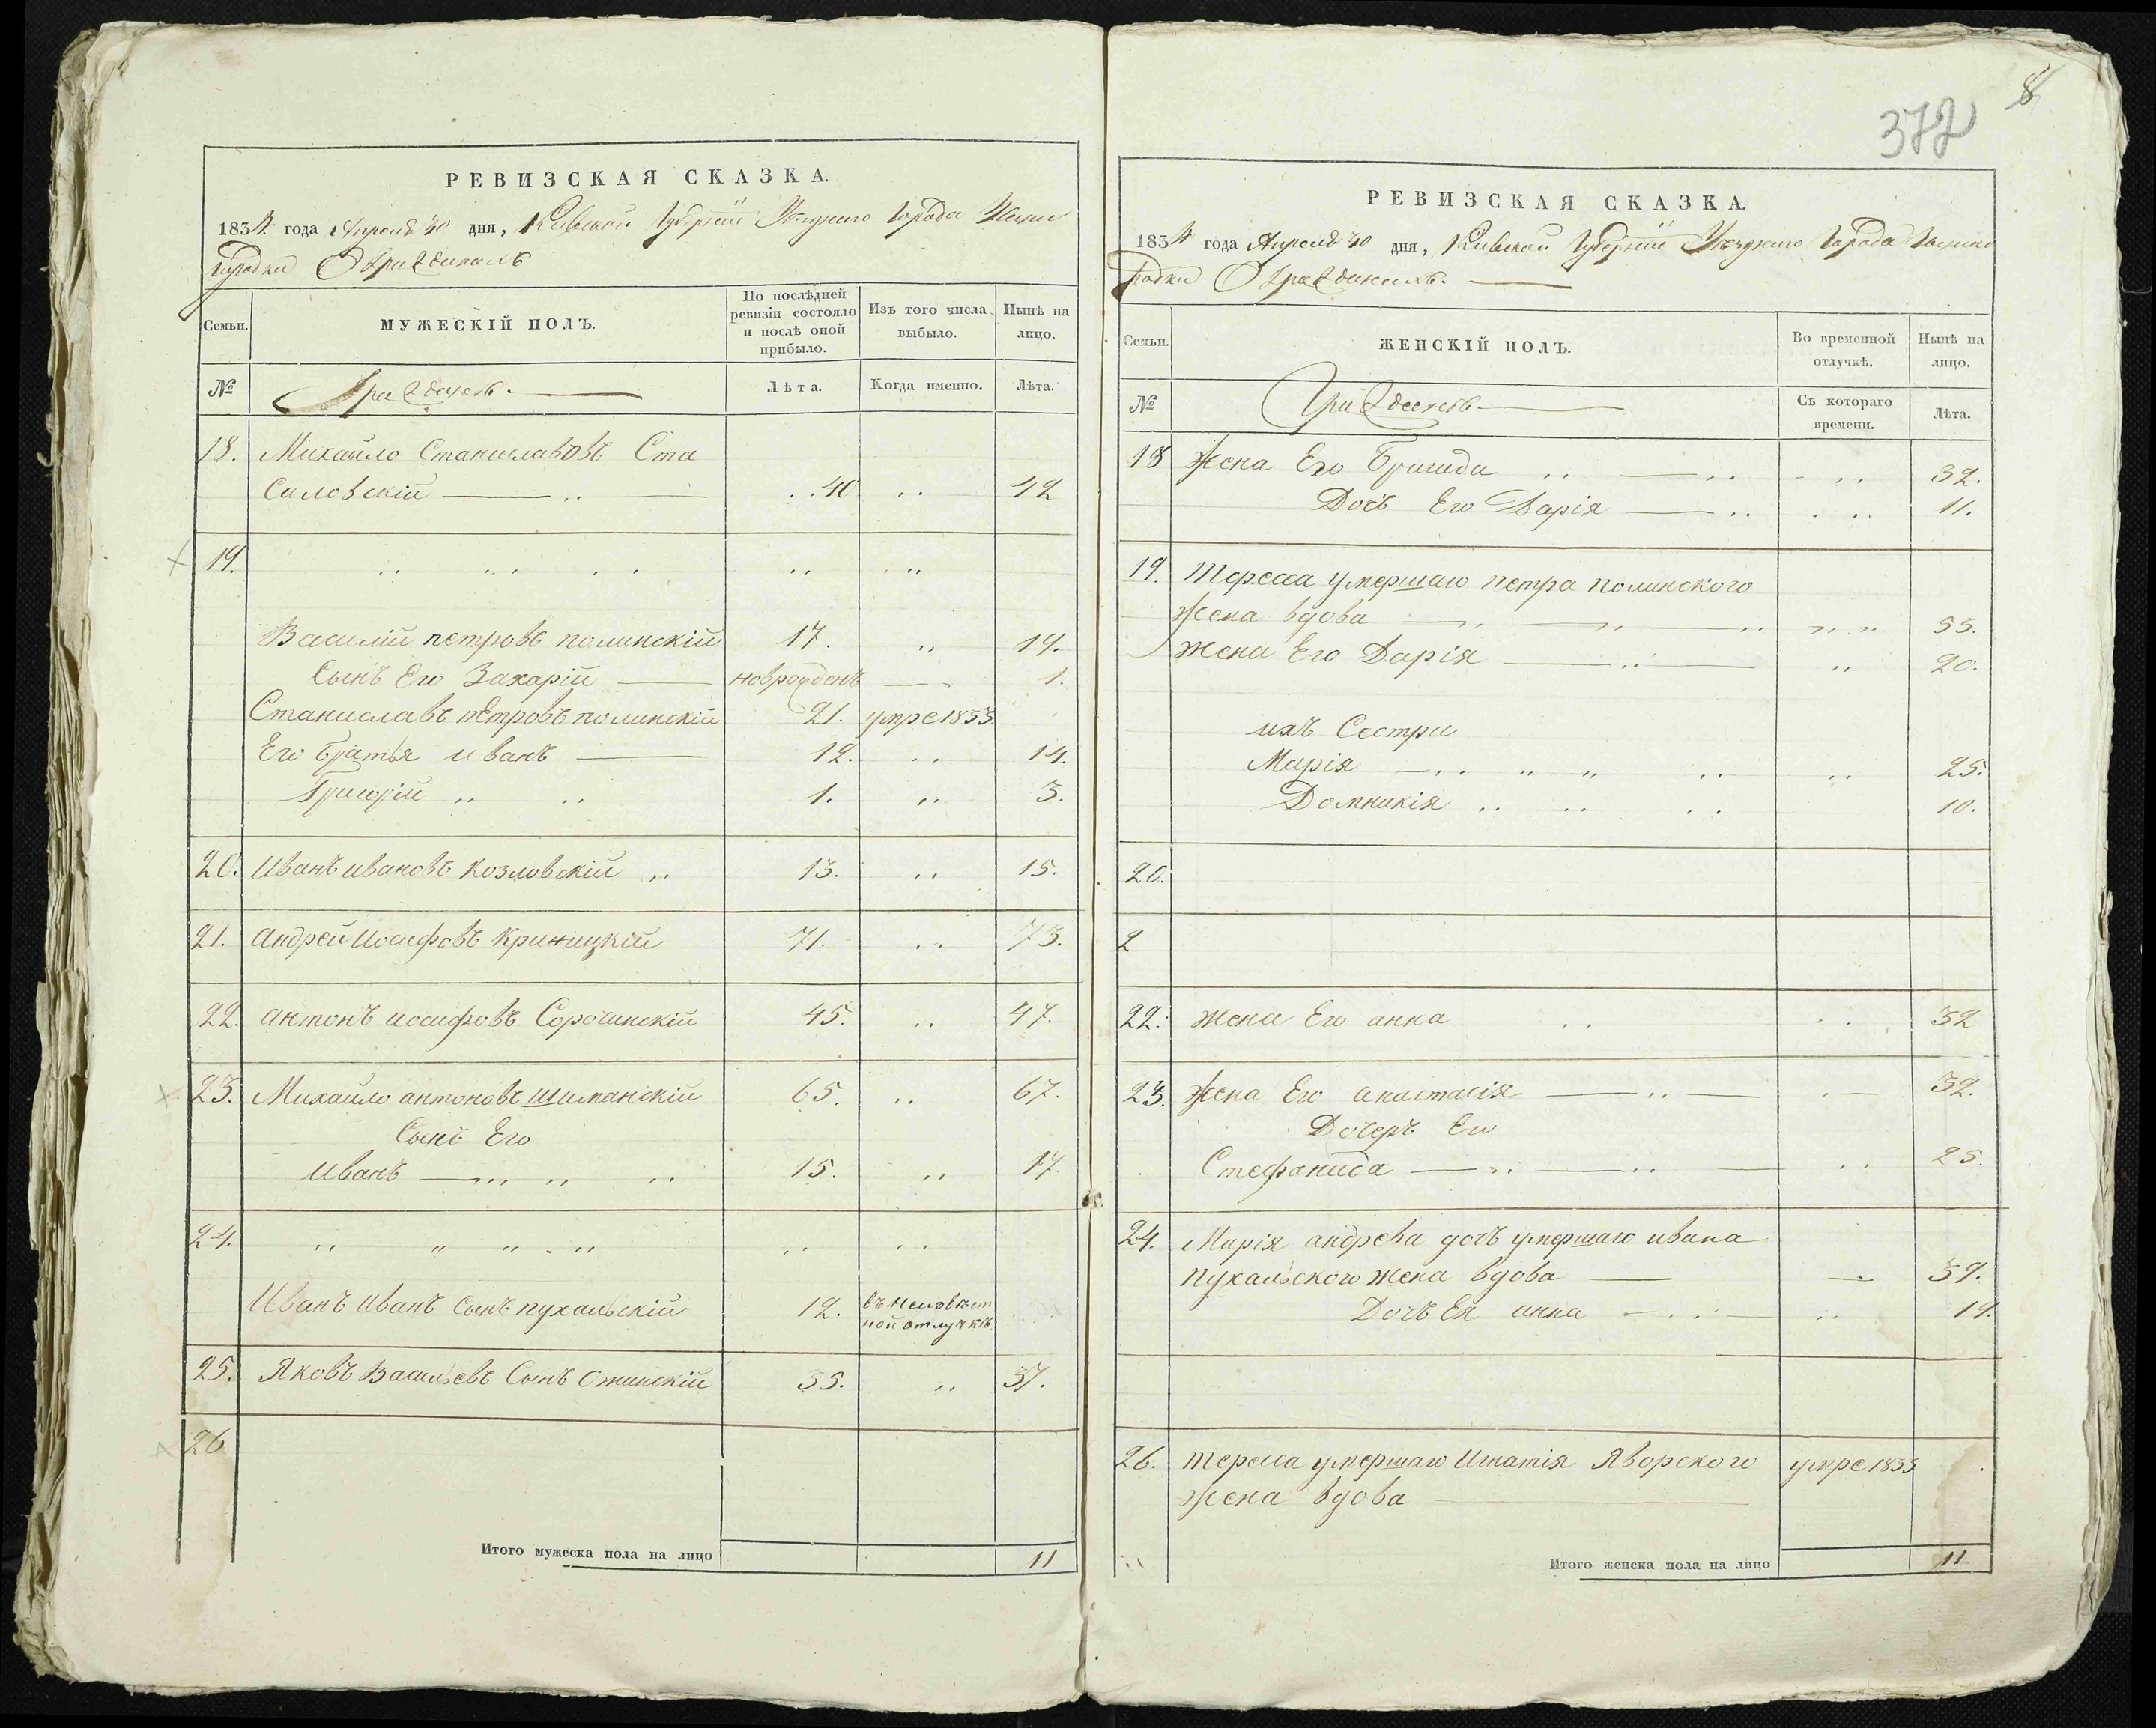 8
372
РЕВИЗСКАЯ СКАЗКА.
1834 года Апреля 30 дня, Киевской Губерніи Уезднаго Города
городки О Гражданахъ
Семьи.
МУЖЕСКІЙ ПОЛЪ.
По послѣдней ревизіи состояло и послѣ оной прибыло.
Изъ того числа выбыло.
Нынѣ на лицо.
№
Гражданъ.
Лѣта.
Когда именно.
Лѣта.
18. Михайло Станиславовъ Ста
Силовскій 40 42
19.
Василій петровъ полинскій 17. 19.
Сынъ Его Захарій новрожденъ 1.
Станиславъ петровъ полинскій 21. умре 1833.
Его братья иванъ 12. 14.
Григорій 1. 3.
20. Иванъ ивановъ козловскій 13. 15.
21. Андрей Иосифовъ Криницкій 71. 73.
22. антонъ иосифовъ Сорочинскій 45. 47.
23. Михайло антоновъ Шиманскій 65. 67.
Сынъ Его
Иванъ 15. 17
24.
Иванъ Иванъ Сынъ пухальскій 12. въ неизвѣст
ной отлучкѣ
25. Яковъ Васильевъ Сынъ Ожинскій 35. 37.
26
Итого мужеска пола на лицо 11
РЕВИЗСКАЯ СКАЗКА.
1834 года Апреля 30 дня, Киевской Губерніи Уезднаго Города
родки О Гражданахъ.
Семьи.
ЖЕНСКІЙ ПОЛЪ.
Во временной отлучкѣ.
Нынѣ на лицо.
№
Гражданъ
Съ котораго времени.
Лѣта.
18 Жена Его Бригида 32.
Дочь Его Дарія 11.
19. Тересса умершаго петра полинского
Жена вдова 55.
жена Его Дарія 20.
ихъ Сестри
Марія 25.
Домникія 10.
20.
2
22. жена Его анна 32
23. Жена Его анастасія 32.
Дочерь Его
Стефанида 25.
24. Марія андрева дочь умершаго ивана
пухальского жена вдова 39.
Дочь Ея анна 19.
26. тересса умершаго Игнатія Яворского умре 1833
Жена вдова
Итого женска пола на лицо 11